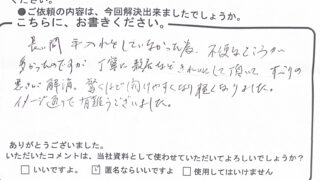 ください。
●ご依頼の内容は、今回解決出来ましたでしょうか。
こちらに、お書きください。
長い間 手入れをしていなかった為、不便なところが
多かったのですが 丁寧に きれいにして頂いて、すべりの
悪さも解消。驚くほど開けやすくなり軽くなりました。
イメージ通りで有難うございました。
ありがとうございました。
いただいたコメントは、当社資料として使わせていただいてよろしいでしょうか？
□いいですよ。 ☑匿名ならいいですよ □使用してはいけません